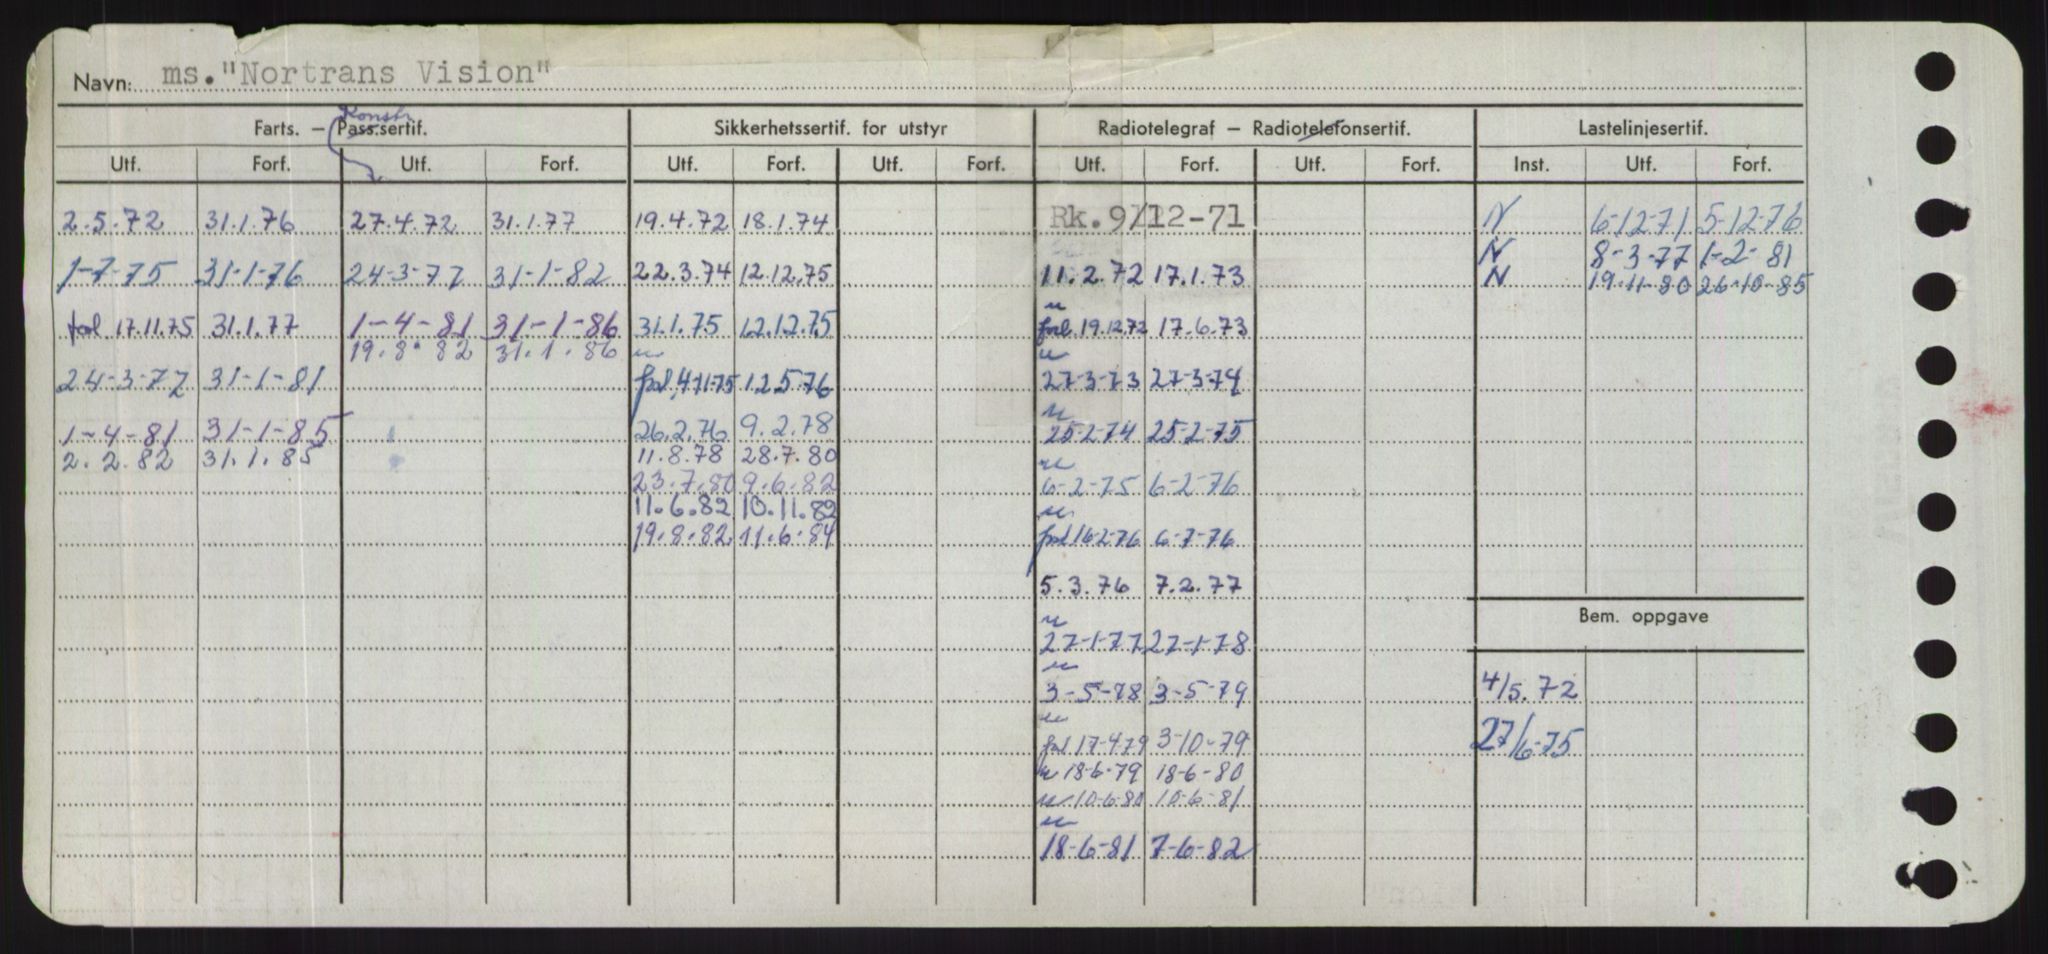 Navn: ms."Nortrans Vision"
Konstr
Farts. — Pass.sertif. Sikkerhetssertif. for utstyr Radiotelegraf — Radiotelefonsertif. Lastelinjesertif.
Utf. Forf. Utf. Forf. Utf. Forf. Utf. Forf. Utf. Forf. Utf. Forf. Inst. Utf. Forf.
2.5.72 31.1.76 27.4.72 31.1.77 19.4.72 18.1.74 Rk.9/12-71 N 6-12-71 5-12-76
N 8-3-77 1-2-81
1-7-75 31-1-76 24-3-77 31-1-82 22.3.74 12.12.75 11.2.72 17.1.73 N 19-11-80 26-10-85
u
fol 17.11.75 31.1.77 1-4-81 31-1-86 31.1.75 12.12.75 fol 19.12.72 17.6.73
19.8.82 31.1.86 u u
24-3-77 31-1-81 fol 4-11-75 12.5.76 27-3-73 27-3-74
u
1-4-81 31-1-85 26.2.76 9.2.78 25-2-74 25-2-75
2.2.82 31.1.85 11.8.78 28.7.80 u
23.7.80 9.6.82 6-2-75 6-2-76
11.6.82 10.11.82 u
19.8.82 11.6.84 fol 16-2-76 6-7-76
5.3.76 7.2.77
Bem. oppgave
u
27-1-77 27-1-78
u
3-5-78 3-5-79 4/5.72
u
fol 17-4-79 3-10-79 27/6-75
u 18-6-79 18-6-80
u 10-6-80 10-6-81
u
18-6-81 7-6-82